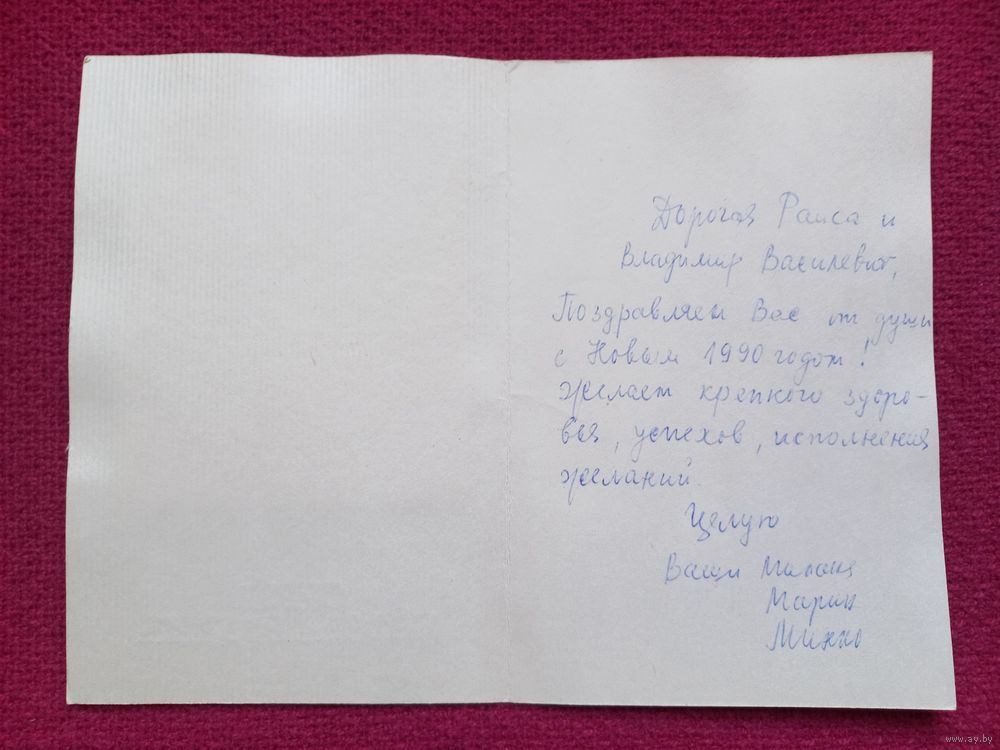 Дорогая Раиса и
Владимир Василевич,
Поздравляем Вас от души
с Новым 1990 годом!
желаем крепкого здоро-
вья, успехов, исполнения
желаний.
Целую
Ваши
Марин
Минко
www.ay.by